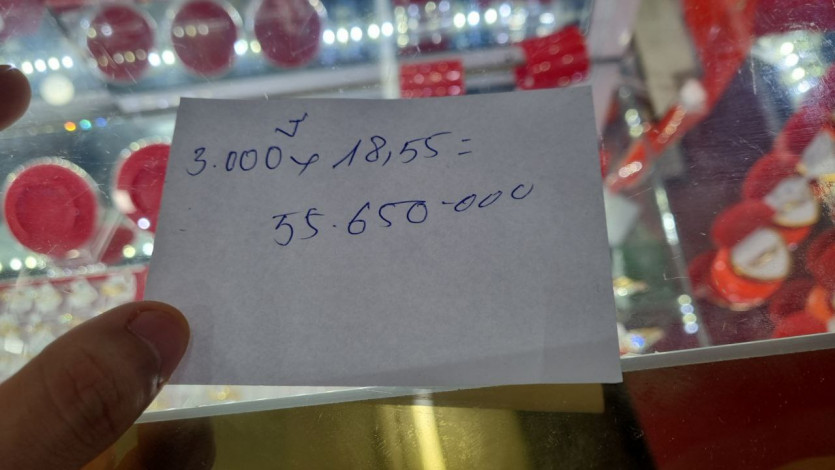 3.000 ¥ x 18,55 =
55.650.000